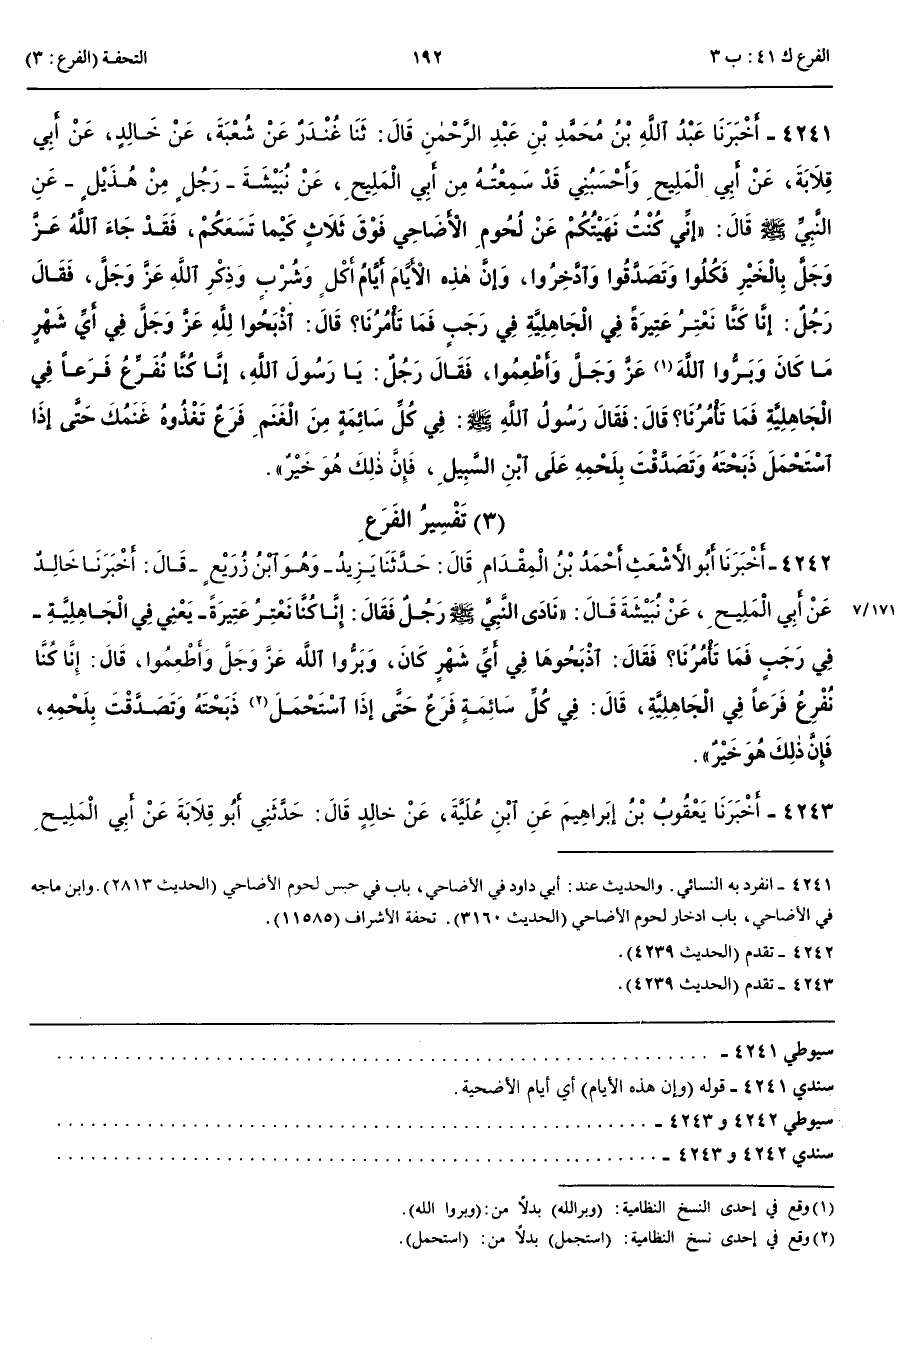 الفرع ك ٤١: ب ٣ ١٩٢ التحفة (الفرع: ٣)
٤٢٤١ - أَخْبَرَنَا عَبْدُ اللَّهِ بْنُ مُحَمَّدِ بْنِ عَبْدِ الرَّحْمٰنِ قَالَ: ثَنَا غُنْدَرٌ عَنْ شُعْبَةَ، عَنْ خَالِدٍ، عَنْ أَبِي
قِلَابَةَ، عَنْ أَبِي الْمَلِيحِ وَأَحْسَبُنِي قَدْ سَمِعْتُهُ مِن أَبِي الْمَلِيحِ، عَنْ نُبَيْشَةَ - رَجُلٍ مِنْ هُذَيْلٍ - عَنِ
النَّبِيِّ ﷺ قَالَ: «إِنِّي كُنْتُ نَهَيْتُكُمْ عَنْ لُحُومِ الْأَضَاحِي فَوْقَ ثَلَاثٍ كَيْمَا تَسَعَكُمْ، فَقَدْ جَاءَ اللَّهُ عَزَّ
وَجَلَّ بِالْخَيْرِ فَكُلُوا وَتَصَدَّقُوا وَادَّخِرُوا، وَإِنَّ هٰذِهِ الْأَيَّامَ أَيَّامُ أَكْلٍ وَشُرْبٍ وَذِكْرِ اللَّهِ عَزَّ وَجَلَّ، فَقَالَ
رَجُلٌ: إِنَّا كُنَّا نَعْتِرُ عَتِيرَةً فِي الْجَاهِلِيَّةِ فِي رَجَبٍ فَمَا تَأْمُرُنَا؟ قَالَ: اذْبَحُوا لِلَّهِ عَزَّ وَجَلَّ فِي أَيِّ شَهْرٍ
مَا كَانَ وَبَرُّوا اللَّهَ(١) عَزَّ وَجَلَّ وَأَطْعِمُوا، فَقَالَ رَجُلٌ: يَا رَسُولَ اللَّهِ، إِنَّا كُنَّا نُفَرِّعُ فَرَعاً فِي
الْجَاهِلِيَّةِ فَمَا تَأْمُرُنَا؟ قَالَ: فَقَالَ رَسُولُ اللَّهِ ﷺ: فِي كُلِّ سَائِمَةٍ مِنَ الْغَنَمِ فَرَعٌ تَغْذُوهُ غَنَمُكَ حَتَّى إِذَا
اسْتَحْمَلَ ذَبَحْتَهُ وَتَصَدَّقْتَ بِلَحْمِهِ عَلَى ابْنِ السَّبِيلِ، فَإِنَّ ذٰلِكَ هُوَ خَيْرٌ».
(٣) تَفْسِيرُ الفَرَعِ
٤٢٤٢ - أَخْبَرَنَا أَبُو الْأَشْعَثِ أَحْمَدُ بْنُ الْمِقْدَامِ قَالَ: حَدَّثَنَا يَزِيدُ - وَهُوَ ابْنُ زُرَيْعٍ - قَالَ: أَخْبَرَنَا خَالِدٌ
عَنْ أَبِي الْمَلِيحِ، عَنْ نُبَيْشَةَ قَالَ: «نَادَى النَّبِيَّ ﷺ رَجُلٌ فَقَالَ: إِنَّا كُنَّا نَعْتِرُ عَتِيرَةً - يَعْنِي فِي الْجَاهِلِيَّةِ - ٧/١٧١
فِي رَجَبٍ فَمَا تَأْمُرُنَا؟ فَقَالَ: اذْبَحُوهَا فِي أَيِّ شَهْرٍ كَانَ، وَبَرُّوا اللَّهَ عَزَّ وَجَلَّ وَأَطْعِمُوا، قَالَ: إِنَّا كُنَّا
نُفْرِعُ فَرَعاً فِي الْجَاهِلِيَّةِ، قَالَ: فِي كُلِّ سَائِمَةٍ فَرَعٌ حَتَّى إِذَا اسْتَحْمَلَ(٢) ذَبَحْتَهُ وَتَصَدَّقْتَ بِلَحْمِهِ،
فَإِنَّ ذٰلِكَ هُوَ خَيْرٌ».
٤٢٤٣ - أَخْبَرَنَا يَعْقُوبُ بْنُ إِبْرَاهِيمَ عَنِ ابْنِ عُلَيَّةَ، عَنْ خَالِدٍ قَالَ: حَدَّثَنِي أَبُو قِلَابَةَ عَنْ أَبِي الْمَلِيحِ
٤٢٤١ - انفرد به النسائي. والحديث عند: أبي داود في الأضاحي، باب في حبس لحوم الأضاحي (الحديث ٢٨١٣). وابن ماجه
في الأضاحي، باب ادخار لحوم الأضاحي (الحديث ٣١٦٠). تحفة الأشراف (١١٥٨٥).
٤٢٤٢ - تقدم (الحديث ٤٢٣٩).
٤٢٤٣ - تقدم (الحديث ٤٢٣٩).
سيوطي ٤٢٤١ - . . . . . . . . . . . . . . . . . . . .
سندي ٤٢٤١ - قوله (وإن هذه الأيام) أي أيام الأضحية.
سيوطي ٤٢٤٢ و ٤٢٤٣ - . . . . . . . . . . . . . . . . . . . .
سندي ٤٢٤٢ و ٤٢٤٣ - . . . . . . . . . . . . . . . . . . . .
(١) وقع في إحدى النسخ النظامية: (وبرالله) بدلاً من: (وبروا الله).
(٢) وقع في إحدى نسخ النظامية: (استجمل) بدلاً من: (استحمل).